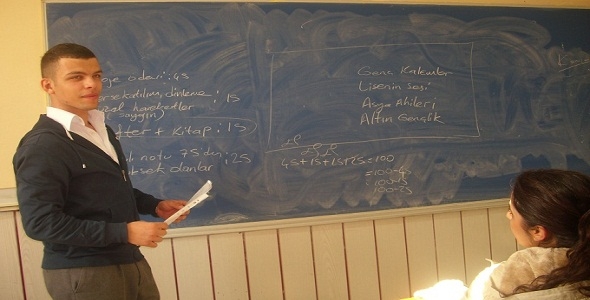 ödevi : 45
katılım, dinleme
hareketler : 15
saygın)
Defter + Kitap : 15)
notu 75'den : 25
yüksek olanlar
Genç Kalemler
Lisenin Sesi
Asya Ahileri
Altın Gençlik
45+15+15+25=100
=100-45
100-25